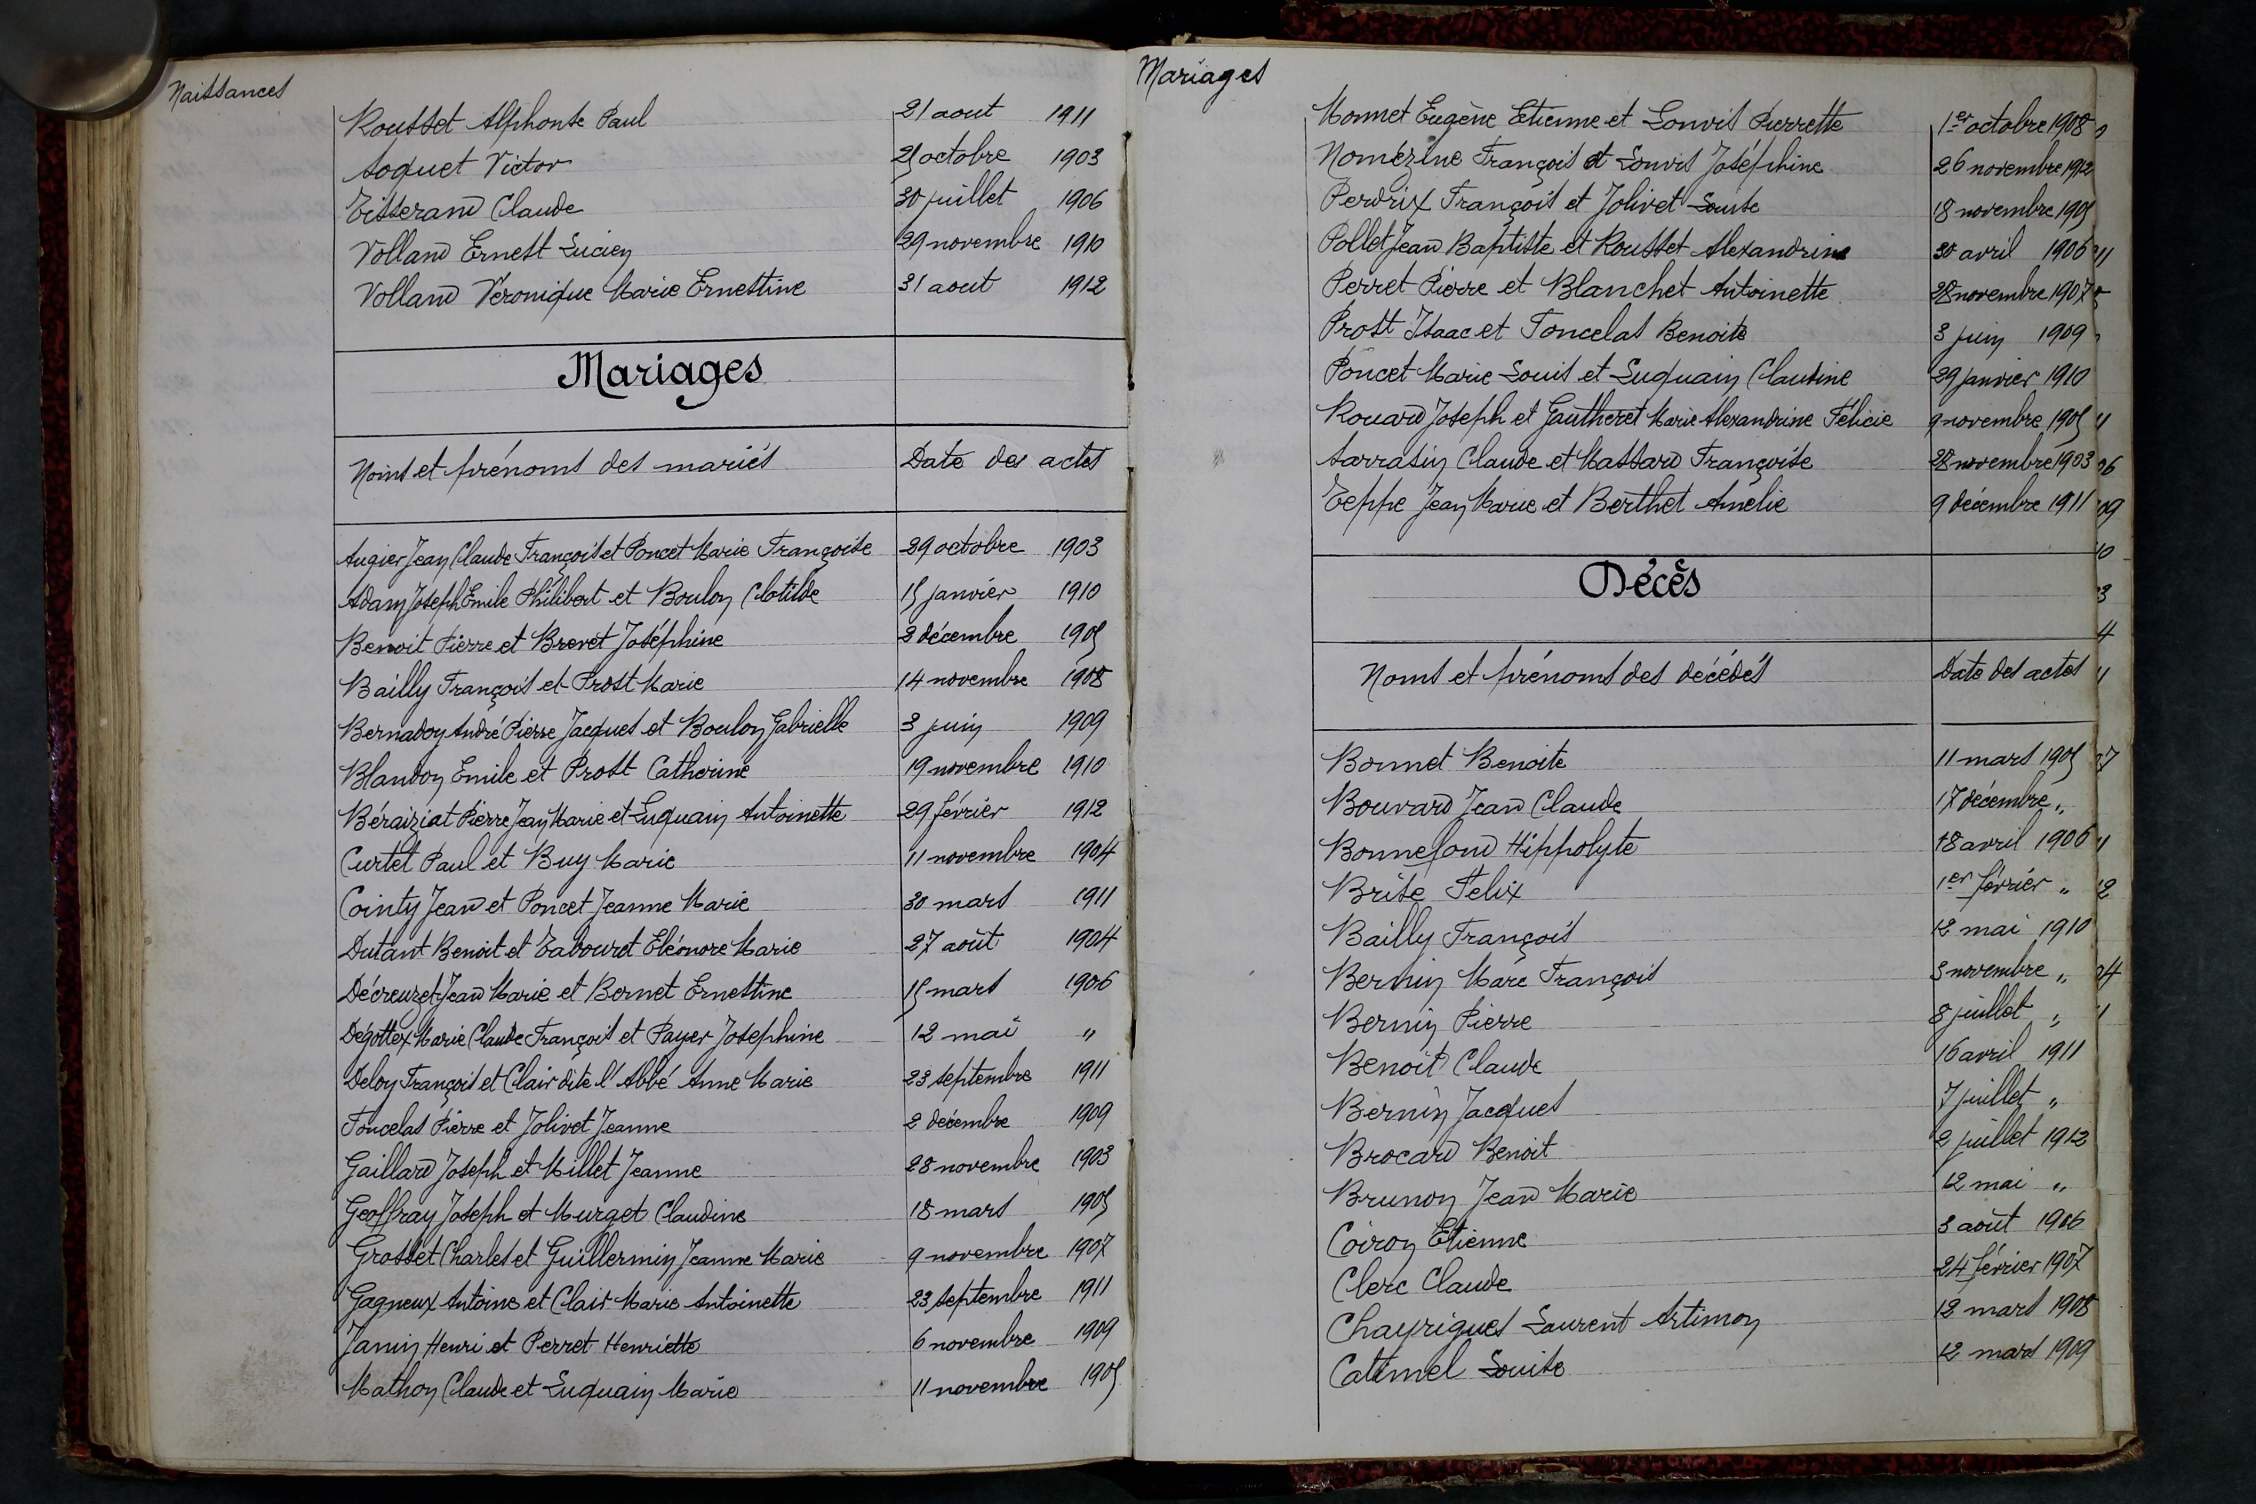 Naissances
Rousset Alphonse Paul 21 aout 1911
Soquet Victor 21 octobre 1903
Tisserand Claude 30 juillet 1906
Volland Ernest Lucien 29 novembre 1910
Volland Véronique Marie Ernestine 31 aout 1912
Mariages
Noms et prénoms des mariés Date des actes
Augier Jean Claude François et Poncet Marie Françoise 29 octobre 1903
Adam Joseph Emile Philibert et Boulon Clotilde 15 janvier 1910
Benoit Pierre et Brevet Joséphine 2 décembre 1905
Bailly François et Prost Marie 14 novembre 1908
Bernadoy André Pierre Jacques et Boulon Gabrielle 3 juin 1909
Blandon Emile et Prost Catherine 19 novembre 1910
Béraiziat Pierre Jean Marie et Luquain Antoinette 29 février 1912
Curtet Paul et Buy Marie 11 novembre 1904
Cointy Jean et Poncet Jeanne Marie 30 mars 1911
Dutant Benoit et Tabouret Eléonore Marie 27 août 1904
Décreuzet Jean Marie et Bernet Ernestine 15 mars 1906
Dégottex Marie Claude François et Payer Josephine 12 mai "
Deloy François et Clair dite l'Abbé Anne Marie 23 septembre 1911
Foncelas Pierre et Jolivet Jeanne 2 décembre 1909
Gaillard Joseph et Millet Jeanne 28 novembre 1903
Geoffray Joseph et Murget Claudine 18 mars 1905
Grosset Charles et Guillermin Jeanne Marie 9 novembre 1907
Gagneux Antoine et Clair Marie Antoinette 23 septembre 1911
Janin Henri et Perret Henriette 6 novembre 1909
Mathon Claude et Luquain Marie 11 novembre 1905
Mariages
Monnet Eugène Etienne et Louvis Pierrette 1er octobre 1908
Nomézine François et Louvis Joséphine 26 novembre 1912
Perdrix François et Jolivet Louise 18 novembre 1905
Pollet Jean Baptiste et Rousset Alexandrine 30 avril 1906
Perret Pierre et Blanchet Antoinette 28 novembre 1907
Prost Isaac et Foncelas Benoite 3 juin 1909
Poncet Marie Louis et Luquain Claudine 29 janvier 1910
Rouard Joseph et Gautheret Marie Alexandrine Félicie 9 novembre 1905
Sarrasin Claude et Massard Françoise 28 novembre 1903
Teppe Jean Marie et Berthet Amelie 9 décembre 1911
Décès
Noms et prénoms des décédés Date des actes
Bonnet Benoite 11 mars 1905
Bouvard Jean Claude 17 décembre "
Bonnefond Hippolyte 18 avril 1906
Brise Félix 1er février "
Bailly François 12 mai 1910
Bernin Marc François 3 novembre "
Bernin Pierre 8 juillet "
Benoit Claude 16 avril 1911
Bernin Jacques 7 juillet "
Brocard Benoit 2 juillet 1912
Brunon Jean Marie 12 mai "
Coiron Etienne 3 août 1906
Clerc Claude 24 février 1907
Chayrigues Laurent Artimon 12 mars 1908
Catimel Louise 12 mars 1909